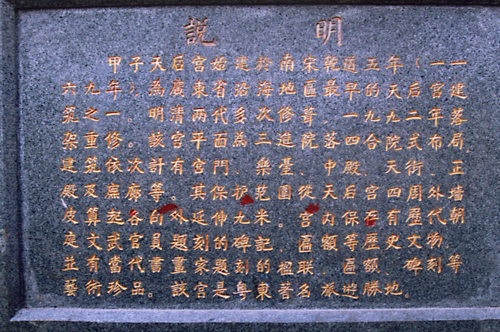 說明
一建落局、正墻朝、等
一宮年布、外代物刻
(后二式街周歷文碑
年天九院天四有史、地
王的九合、宮在歷額勝
道早一四殿后保等區遊
乾最、落中天內額、旅
宋區院、從宮區聯名
南地修進臺園。楹著
於海次三樂范米記的東
建沿多為、护九碑刻粵
始省代面門保伸的題是
宮東兩平宮其延刻家宮
后廣清宮有、外題書該
天為明該計等的員畫、
子)。次廡各官代品。
甲年一修依廡起武當珍
九之重筑及算文有術
六筑架建殿庭並藝